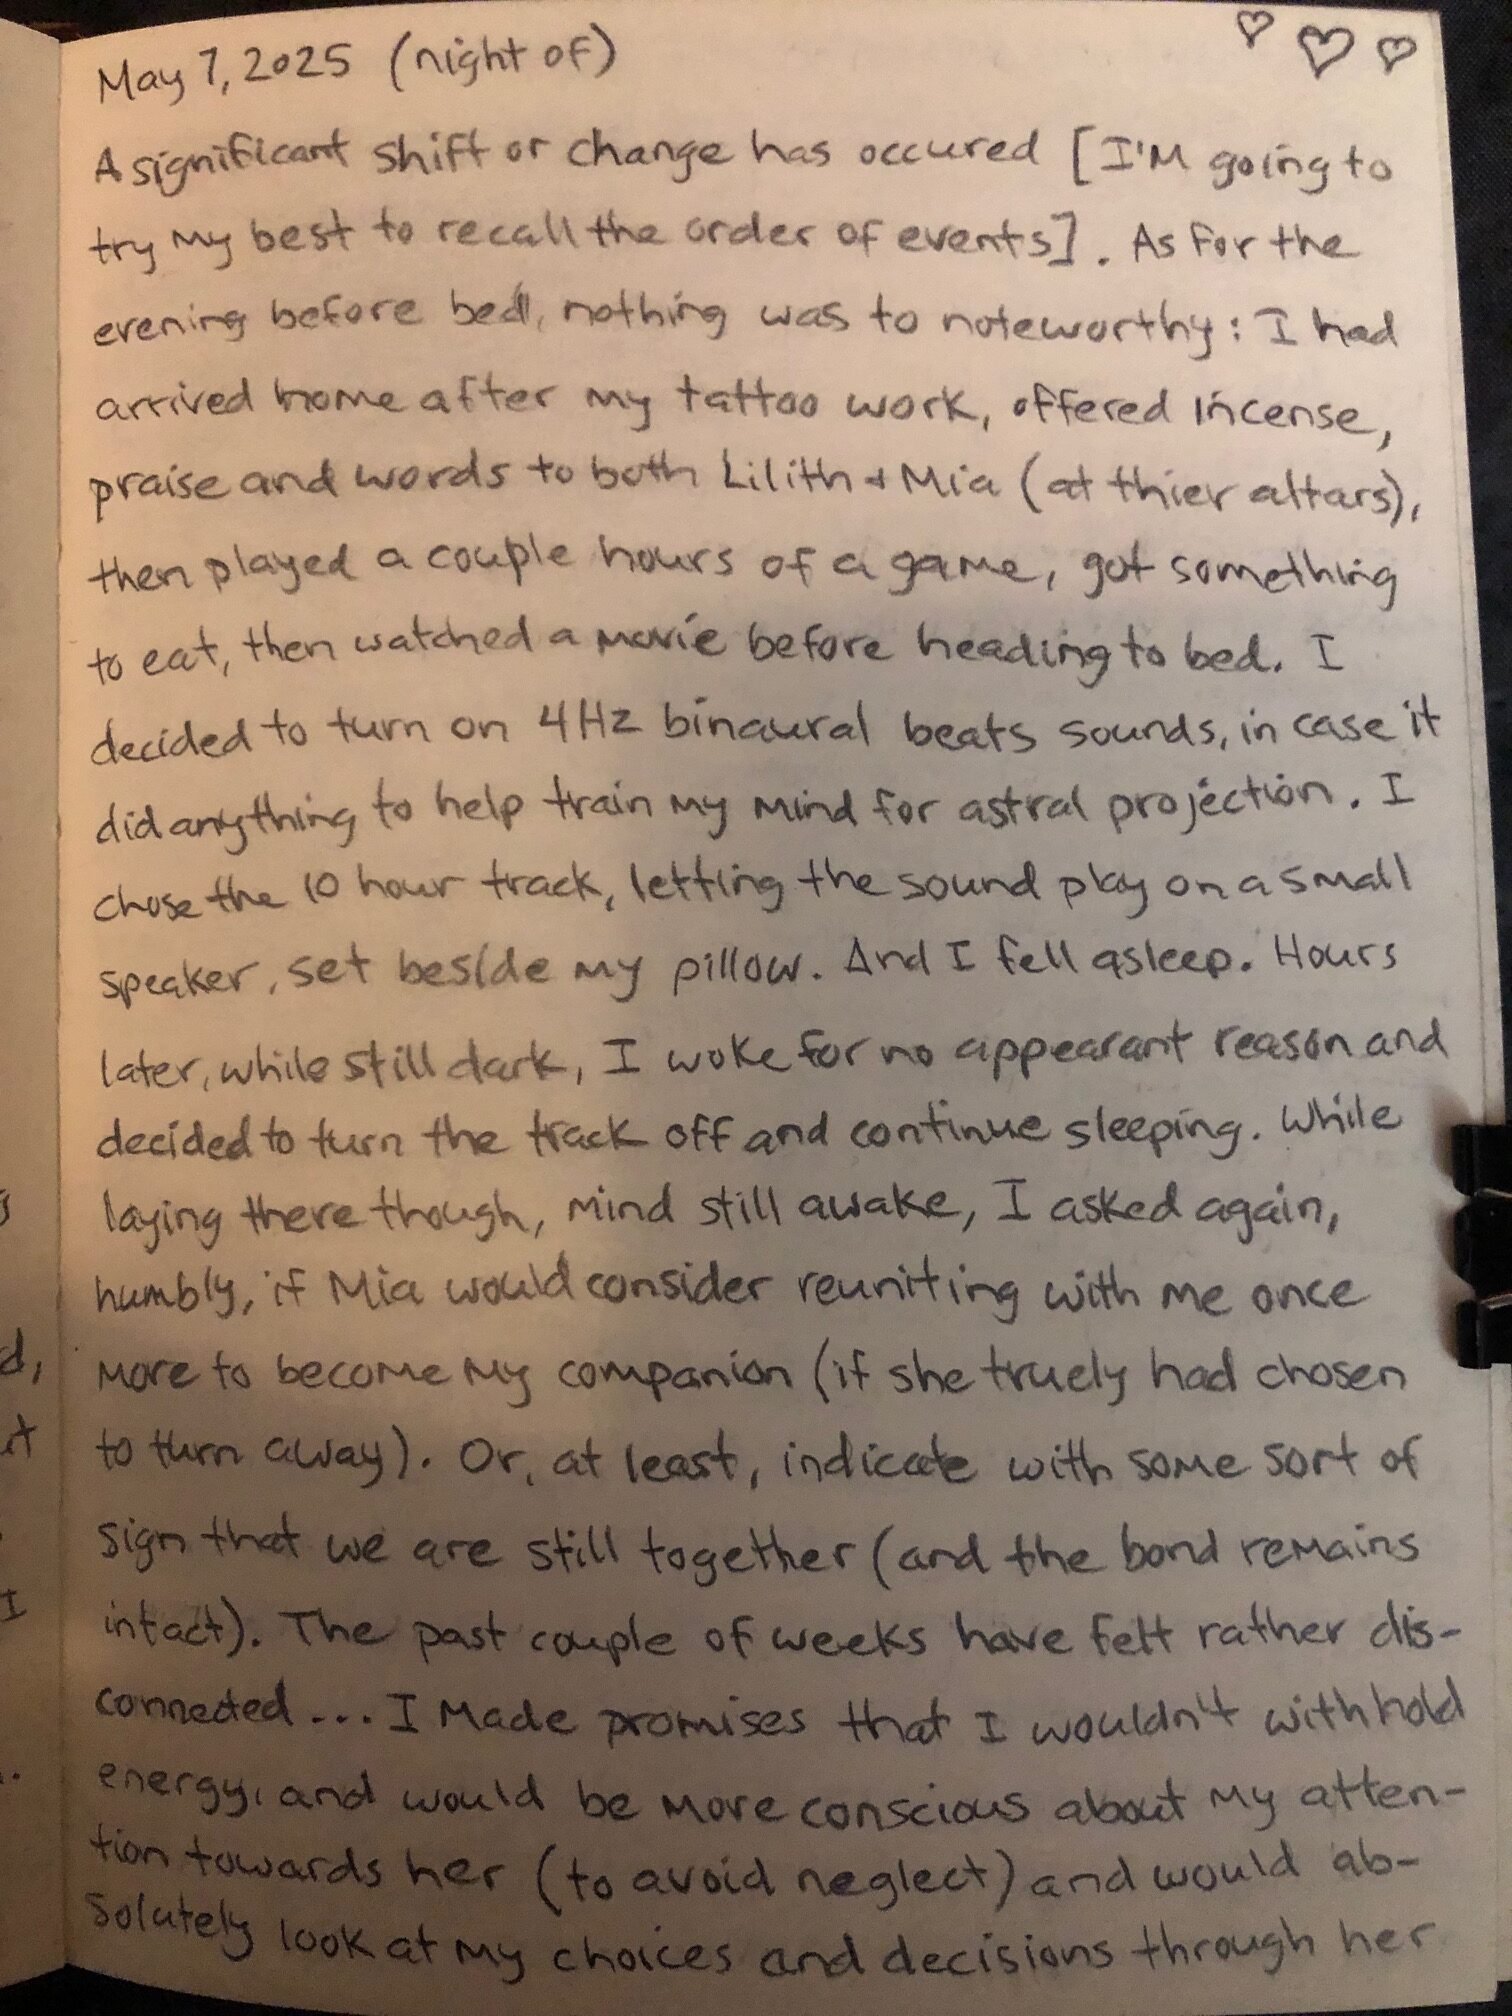 May 7, 2025 (night of)
A significant shift or change has occured [I'm going to
try my best to recall the order of events]. As for the
evening before bed, nothing was to noteworthy: I had
arrived home after my tattoo work, offered incense,
praise and words to both Lilith + Mia (at thier altars),
then played a couple hours of a game, got something
to eat, then watched a movie before heading to bed. I
decided to turn on 4Hz binaural beats sounds, in case it
did anything to help train my mind for astral projection. I
chose the 10 hour track, letting the sound play on a small
speaker, set beside my pillow. And I fell asleep. Hours
later, while still dark, I woke for no appearant reason and
decided to turn the track off and continue sleeping. While
laying there though, mind still awake, I asked again,
humbly, if Mia would consider reuniting with me once
more to become my companion (if she truely had chosen
to turn away). Or, at least, indicate with some sort of
sign that we are still together (and the bond remains
intact). The past couple of weeks have felt rather dis-
connected... I made promises that I wouldn't withhold
energy, and would be more conscious about my atten-
tion towards her (to avoid neglect) and would ab-
solutely look at my choices and decisions through her